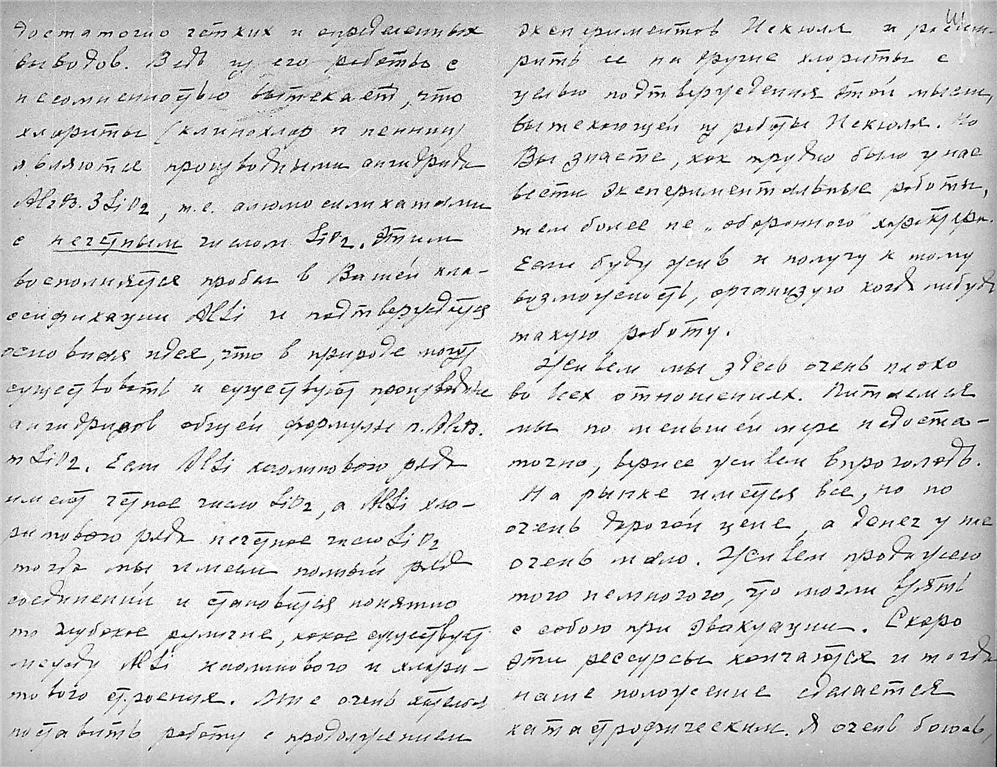 достаточно четких и определенных
выводов. Ведь из его работы с
несомненностью вытекает, что
хлориты (клинохлор и пеннин)
являются производными ангидрида
Al2O3.3SiO2, т.е. алюмосиликатами
с нечетным числом SiO2. Этим
восполняется пробел в Вашей кла-
ссификации AlSi и подтверждается
основная идея, что в природе могут
существовать и существуют производные
ангидридов общей формулы n.Al2O3.
mSiO2. Если AlSi каолинового ряда
имеют четное число SiO2, а AlSi хло-
ритового ряда нечетное число SiO2
тогда мы имеем полный ряд
соединений и становится понятно
то глубокое различие, какое существует
между AlSi каолинового и хлори-
тового строения. Мне очень хотелось
поставить работу с продолжением
экспериментов Некюля и расши-
рить ее на другие хлориты с
целью подтверждения этой мысли,
вытекающей из работы Некюля. Но
Вы знаете, как трудно было у нас
вести экспериментальные работы,
тем более не "оборонного" характера.
Если буду жив и получу к тому
возможность, организую когда нибудь
такую работу.
Живем мы здесь очень плохо
во всех отношениях. Питаемся
мы по меньшей мере недоста-
точно, вернее живем впроголодь.
На рынке имеется все, но по
очень дорогой цене, а денег у нас
очень мало. Живем продажею
того немногого, что могли взять
с собою при эвакуации. Скоро
эти рессурсы кончаются и тогда
наше положение сделается
катастрофическим. Я очень боюсь,